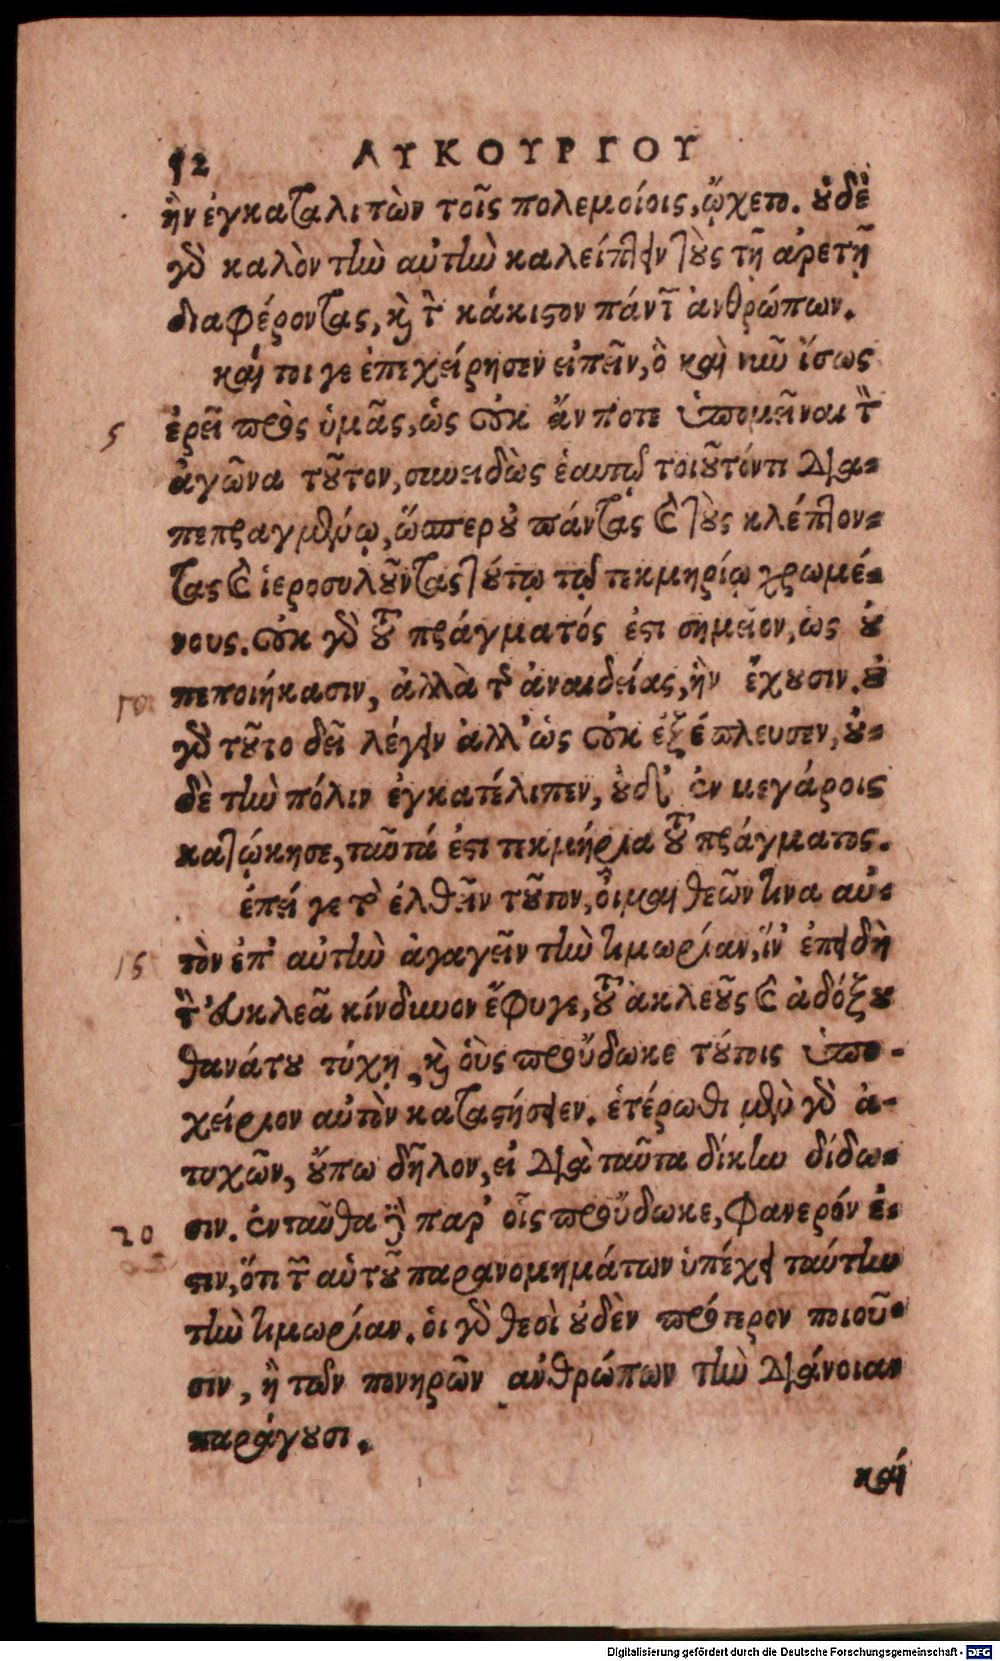 52 ΛΥΚΟΥΡΓΟΥ
ἣν ἐγκαταλιπὼν τοῖς πολεμοίοις, ᾤχετο. οὐδὲ
γὸ καλὸν τὴν αὐτὴν καλείπειν τοὺς τῇ ἀρετῇ
διαφέροντας, καὶ τὸν κάκιστον πάντων ἀνθρώπων.
καί τοι γε ἐπεχείρησεν εἰπεῖν, ὃ καὶ νῦν ἴσως
5 ἐρεῖ πρὸς ὑμᾶς, ὡς οὐκ ἄν ποτε ὑπομεῖναι τὸν
ἀγῶνα τοῦτον, συνειδὼς ἑαυτῷ τοιοῦτόν τι δια-
πεπραγμένῳ, ὥσπερ οὐ πάντας καὶ τοὺς κλέπτον-
τας καὶ ἱεροσυλοῦντας τούτῳ τῷ τεκμηρίῳ χρωμέ-
νους. οὐκ γὸ τοῦ πράγματός ἐστι σημεῖον, ὡς οὐ
10 πεποιήκασιν, ἀλλὰ τῆς ἀναιδείας, ἣν ἔχουσιν. οὐ
γὸ τοῦτο δεῖ λέγειν ἀλλ' ὡς οὐκ ἐξέπλευσεν, οὐ-
δὲ τὴν πόλιν ἐγκατέλιπεν, οὐδ' ἐν μεγάροις
κατῴκησε, ταῦτά ἐστι τεκμήρια τοῦ πράγματος.
ἐπεί γε τὸ ἐλθεῖν τοῦτον, οἶμαι θεῶν τινα αὐ-
15 τὸν ἐπ' αὐτὴν ἀγαγεῖν τὴν τιμωρίαν, ἵν' ἐπειδὴ
τὸν εὐκλεᾶ κίνδυνον ἔφυγε, τοῦ ἀκλεοῦς καὶ ἀδόξου
θανάτου τύχῃ, καὶ οὓς προὔδωκε τούτοις ὑπο-
χείριον αὐτὸν καταστήσειεν. ἑτέρωθι μὲν γὸ ἀ-
τυχῶν, οὔπω δῆλον, εἰ διὰ ταῦτα δίκην δίδω-
20 σιν. ἐνταῦθα δὲ παρ' οἷς προὔδωκε, φανερόν ἐ-
στιν, ὅτι τῶν αὑτοῦ παρανομημάτων ὑπέχει ταύτην
τὴν τιμωρίαν. οἱ γὸ θεοὶ οὐδὲν πρότερον ποιοῦ-
σιν, ἢ τῶν πονηρῶν ἀνθρώπων τὴν διάνοιαν
παράγουσι.
καί
Digitalisierung gefördert durch die Deutsche Forschungsgemeinschaft - DFG